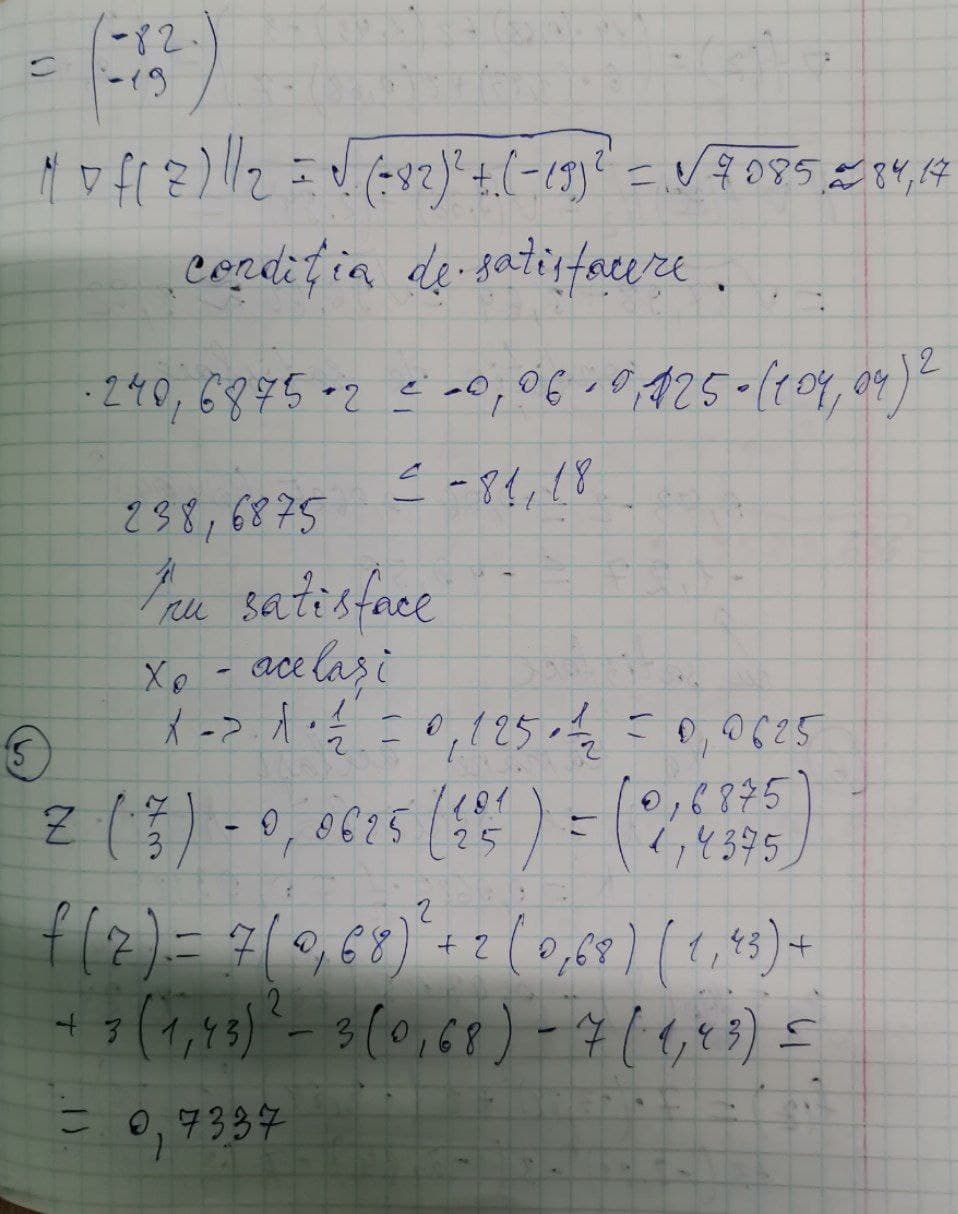 = (-82
-19)
||∇f(z)||₂ = √(-82)²+(-19)² = √7085 ≈ 84,17
condiția de satisfacere.
240,6875-2 ≤ -0,06·0,125·(104,04)²
238,6875 ≤ -81,18
nu satisface
x₀ - același
λ -> λ·1/2 = 0,125·1/2 = 0,0625
5
z (7 3) - 0,0625 (101 25) = (0,6875 1,4375)
f(z) = 7(0,68)² + 2(0,68)(1,43)+
+ 3(1,43)² - 3(0,68) - 7(1,43) =
= 0,7337